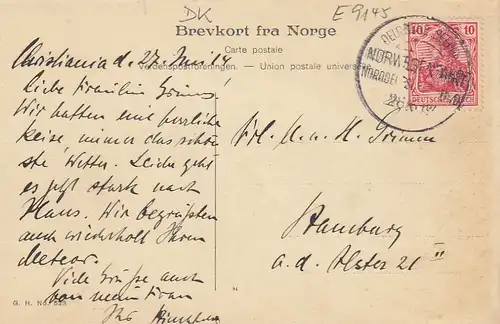 DK
E 9145
Brevkort fra Norge
Carte postale
Verdenspostforeningen. — Union postale universelle
10 10
DEUTSCHES REICH
NORWEGEN
26.
Christiania d. 27. Juni 14
Liebe Fräulein Grimm!
Wir hatten eine herrliche
Reise, immer das schön
ste Wetter. Leider geht
es jetzt stark nach
Haus. Wir begrüßten
auch wiederholt Ihren
Meteor.
Viele Grüße auch
von meiner Frau
Ihr
Frl. M. u. H. Grimm
Hamburg
a. d. Alster 21 II
G. H. No. 528